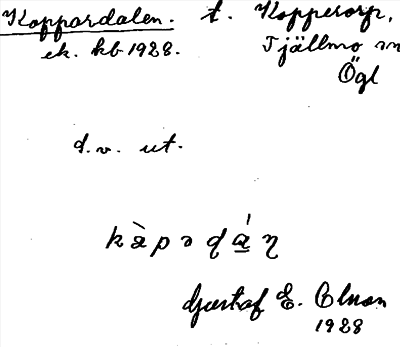 Koppardalen. t. Koppetorp,
ek. kb 1928. Tjällmo sn
Ögl
d.v. ut.
Gustaf E. Olsson
1928